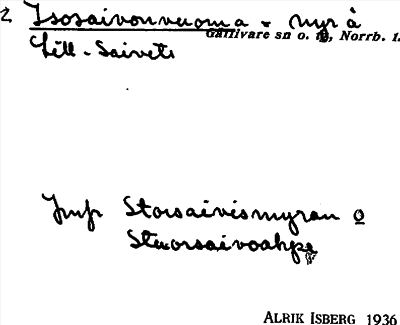 2 Isosaivonvuoma = myr å
Gällivare sn o. tg, Norrb. l.
Lill-Saivets
Jmfr Storsaivismyran o
Stuorsaivoahpe
ALRIK ISBERG 1936